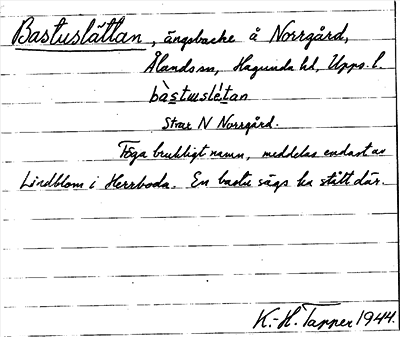 Bastuslättan, ängsbacke å Norrgård,
Ålands sn, Hagunda hd, Upps. l.
bàstɯslètan
Strax N Norrgård.
Föga brukligt namn, meddelas endast av
Lindblom i Herrboda. En bastu sägs ha stått där.
K.-H. Tapper 1944.